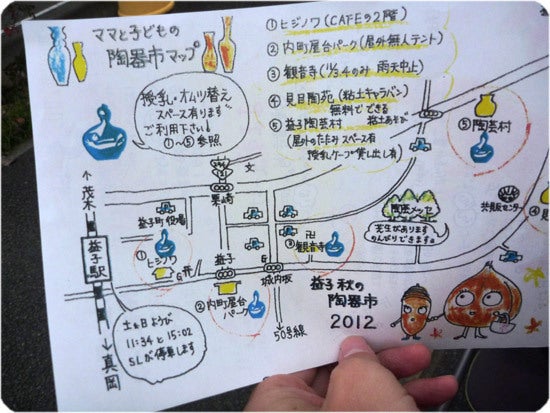 ママと子どもの
陶器市マップ
① ヒジノワ(CAFEの2階)
② 内町屋台パーク(屋外無人テント)
③ 観音寺(11/3,4のみ 雨天中止)
④ 見目陶苑(粘土キャラバン)
無料でできる
粘土あそび
⑤ 益子陶芸村
(屋外のたたみスペース有
授乳ケープ貸し出し有)
授乳・オムツ替え
スペース有ります
ご利用下さい!
①〜⑤参照
⑤陶芸村
④
文
茂木
益子駅
真岡
益子町役場
①ヒジノワ
益子
城内坂
G
②内町屋台
パーク
卍
③観音寺
陶芸メッセ
芝生があります
のんびりできますョ
共販センター
50号線
土&日どようび
11:34 と 15:02
SLが停車します
益子 秋の
陶器市
2012